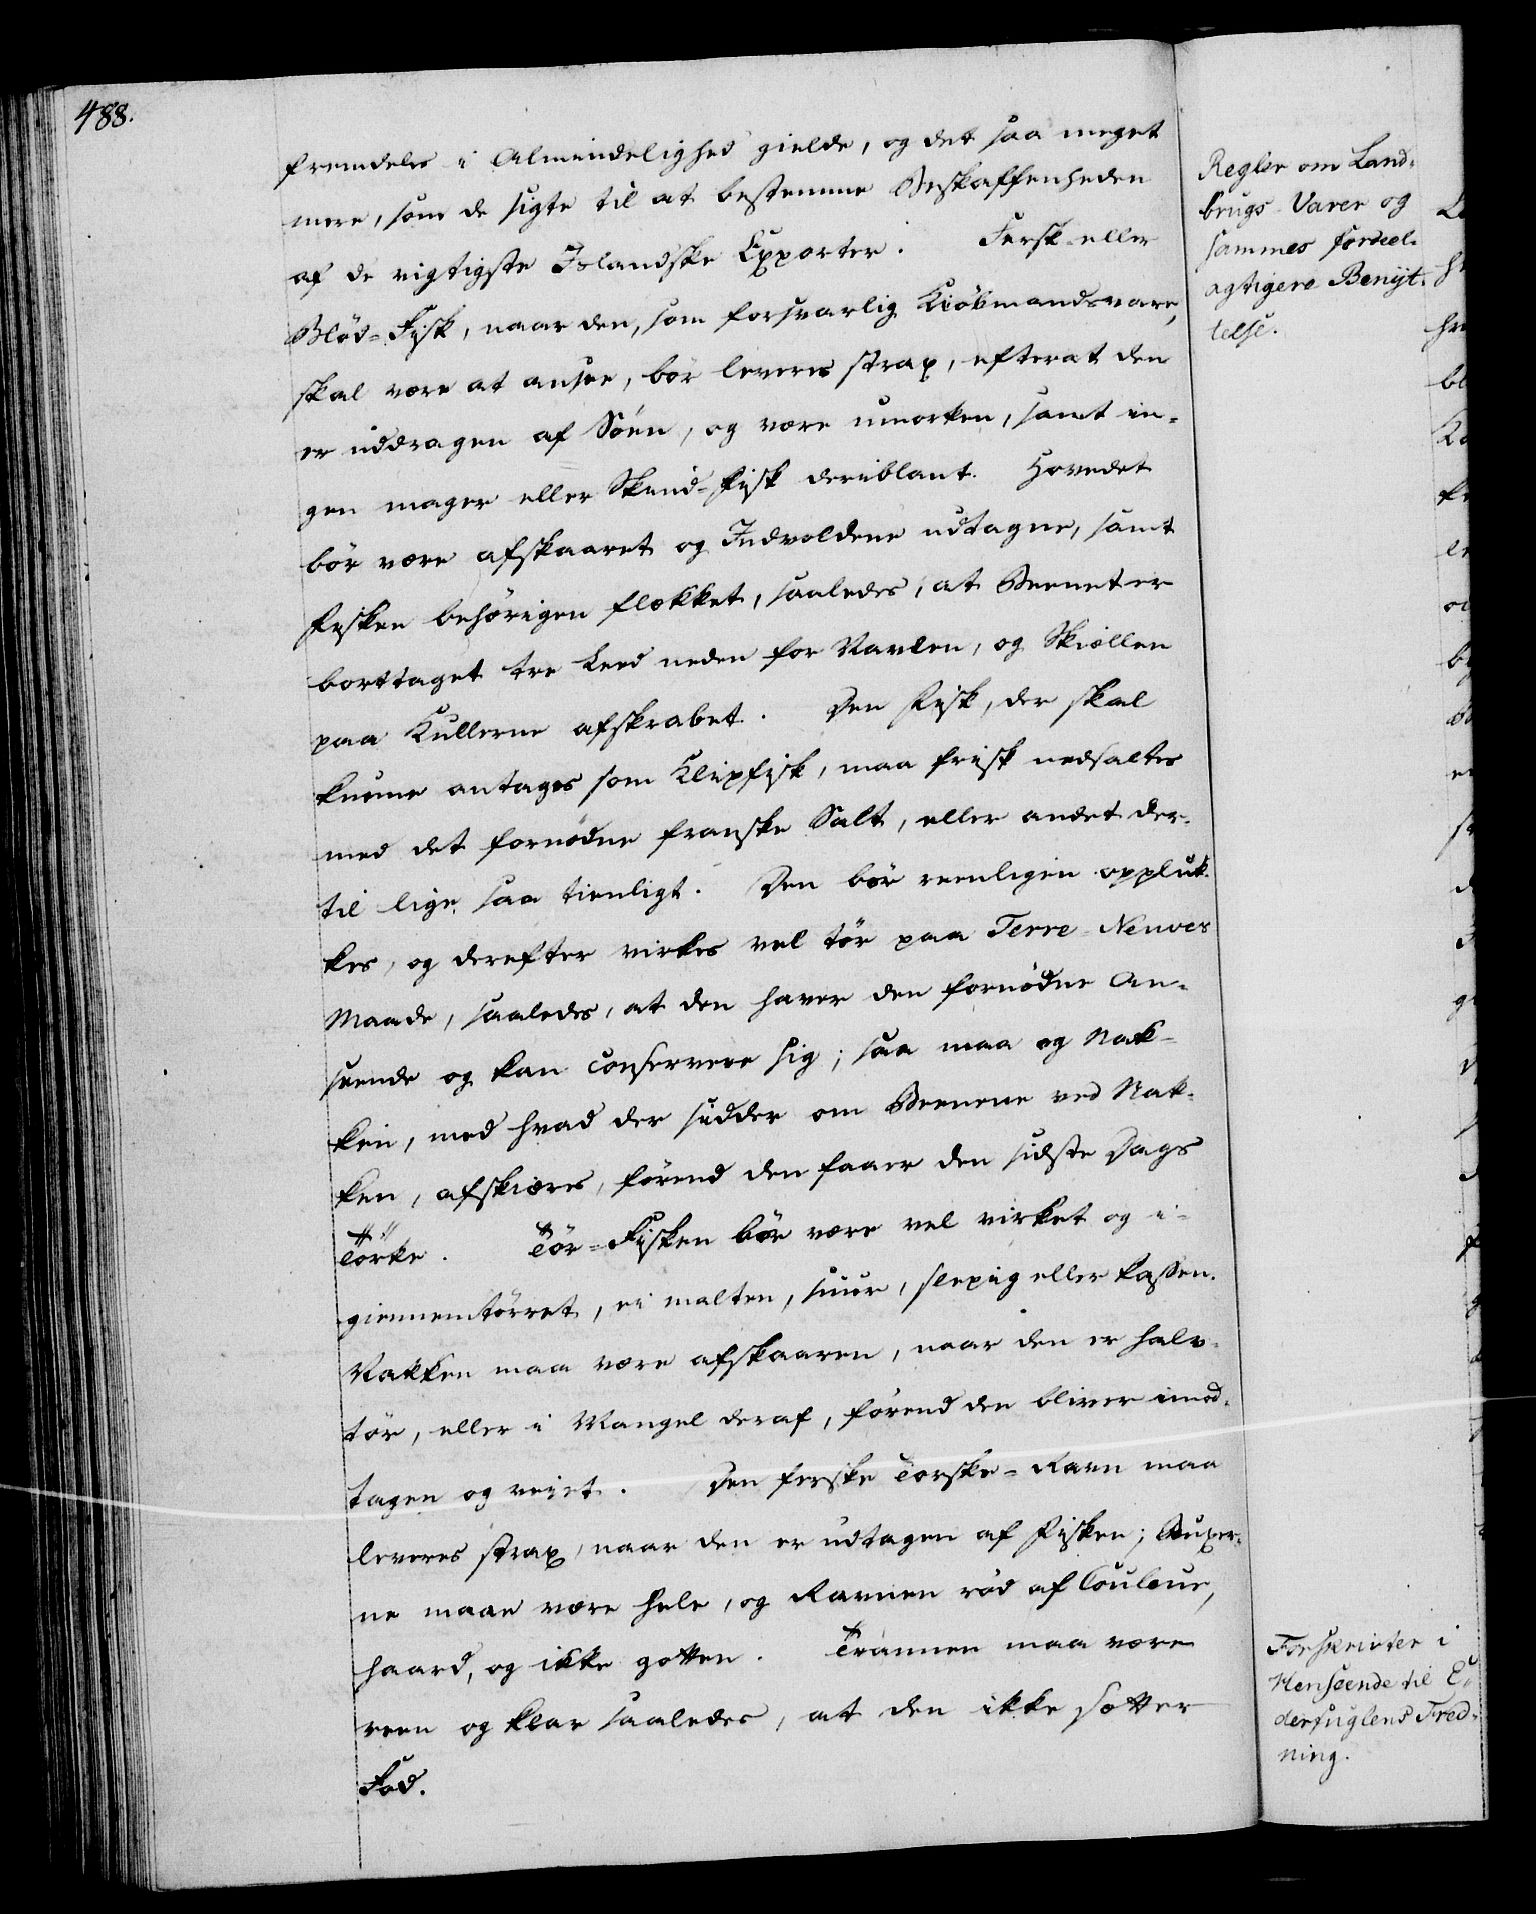 488.
fremdeles i Almindelighed gielde, og det saa meget
mere, som de sigte til at bestemme Beskaffenheden
af de vigtigste Islandske Exporter. Fersk- eller
Blöd-Fisk, naar den, som forsvarlig Kiöbmandsvare,
skal være at ansee, bör leveres strax, efterat den
er uddragen af Söen, og være umorken, samt in-
gen mager eller Skind-Fisk deriblant. Hovedet
bör være afskaaret og Indvoldene udtagne, samt
Fisken behörigen flækket, saaledes, at Beenet er
borttaget tre Leed neden for Navlen, og Skiællen
paa Kullerne afskrabet. Den Fisk, der skal
kunne antages som Klipfisk, maa frisk nedsaltes
med det fornödne franske Salt, eller andet der-
til lige saa tienligt. Den bör reenligen oppluk-
kes, og derefter virkes vel tör paa Terre-Neuves
Maade, saaledes, at den haver den fornödne An-
seende og kan conservere sig; saa maa og Nak-
ken, med hvad der sidder om Beenene ved Nak-
ken, afskiæres, förend den faaer den sidste Dags
Törke. Tör-Fisken bör være vel virket og i-
giennemtörret, ei malten, suur, slepig eller kassen.
Nakken maa være afskaaren, naar den er halv-
tör, eller i Mangel deraf, förend den bliver imod-
tagen og veiet. Den ferske Torske-Ravn maa
leveres strax, naar den er udtagen af Fisken; Buxer-
ne maae være hele, og Ravnen röd af Couleur,
haard, og ikke gotten. Trannen maa være
reen og klar saaledes, at den ikke sætter
Fod.
Regler om Land-
brugs-Varer og
sammes fordeel-
agtigere Benyt-
telse.
Forskrivter i
Henseende til E-
derfuglens Fred-
ning.